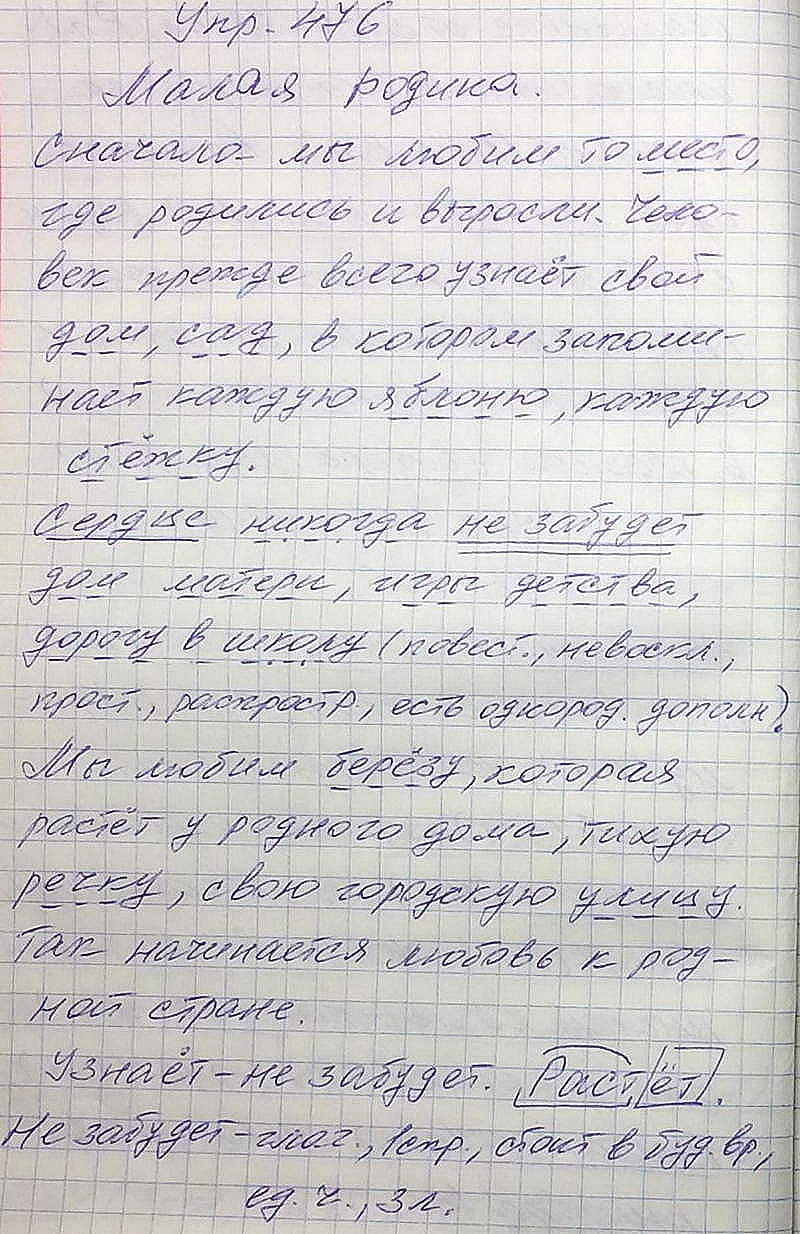 Упр. 476
Малая родина.
Сначала мы любим то место,
где родились и выросли. Чело-
век прежде всего узнаёт свой
дом, сад, в котором запоми-
нает каждую яблоню, каждую
стёжку.
Сердце никогда не забудет
дом матери, игры детства,
дорогу в школу (повест., невоскл.,
прост., распростр., есть однород. дополн).
Мы любим берёзу, которая
растёт у родного дома, тихую
речку, свою городскую улицу.
Так начинается любовь к род-
ной стране.
Узнаёт - не забудет. Растёт.
Не забудет - глаг., I спр., стоит в буд. вр.,
ед. ч., 3 л.